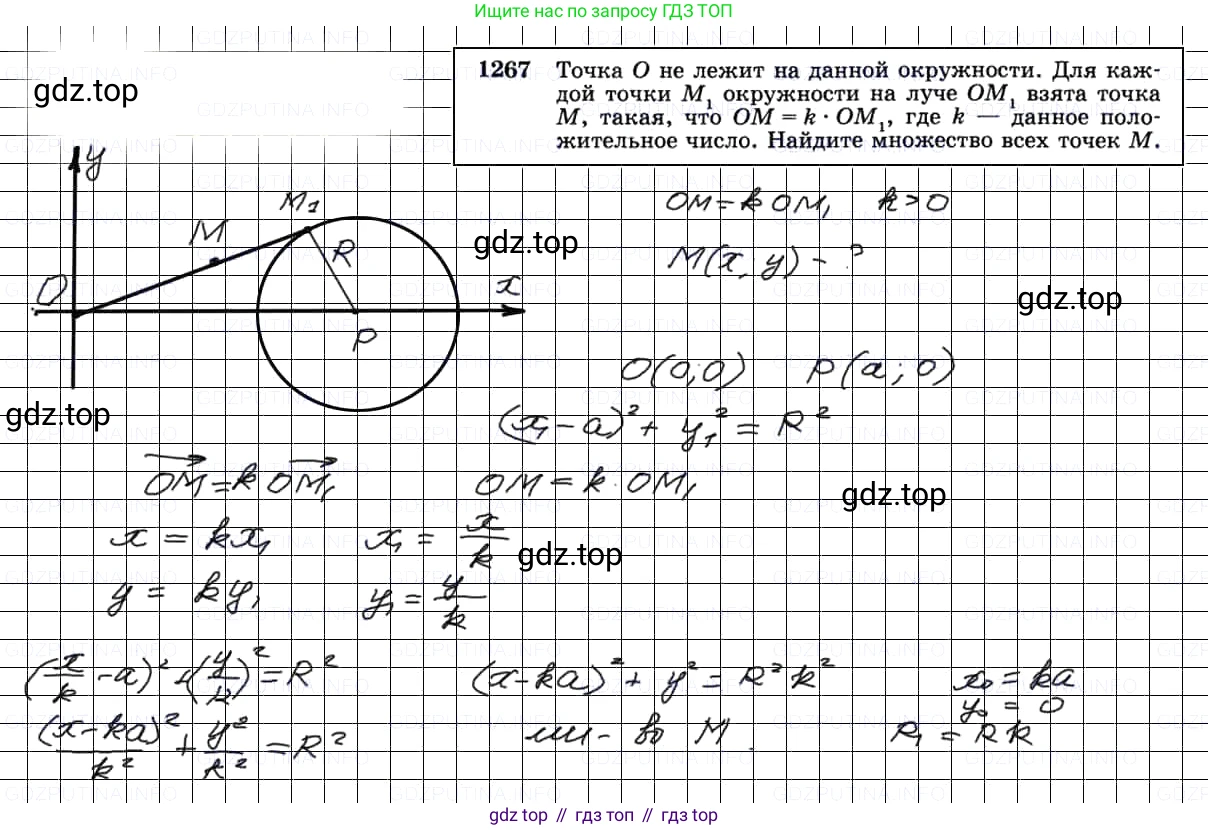 Ищите нас по запросу ГДЗ ТОП
1267 Точка O не лежит на данной окружности. Для каж-
дой точки M₁ окружности на луче OM₁ взята точка
M, такая, что OM = k · OM₁, где k — данное поло-
жительное число. Найдите множество всех точек M.
gdz.top
y
M₁
M
R
O
x
P
OM = k OM₁ k > 0
gdz.top
M(x, y) - ?
gdz.top
O(0;0) P(a; 0)
gdz.top
(x₁ - a)² + y₁² = R²
OM = k OM₁ OM = k · OM₁
gdz.top
x = kx₁ x₁ = x/k
gdz.top
y = ky₁ y₁ = y/k
(x/k - a)² + (y/k)² = R² (x - ka)² + y² = R² k² x₀ = ka
y₀ = 0
(x - ka)²/k² + y²/k² = R² мн - во M. R₁ = Rk
gdz top // гдз топ // gdz top